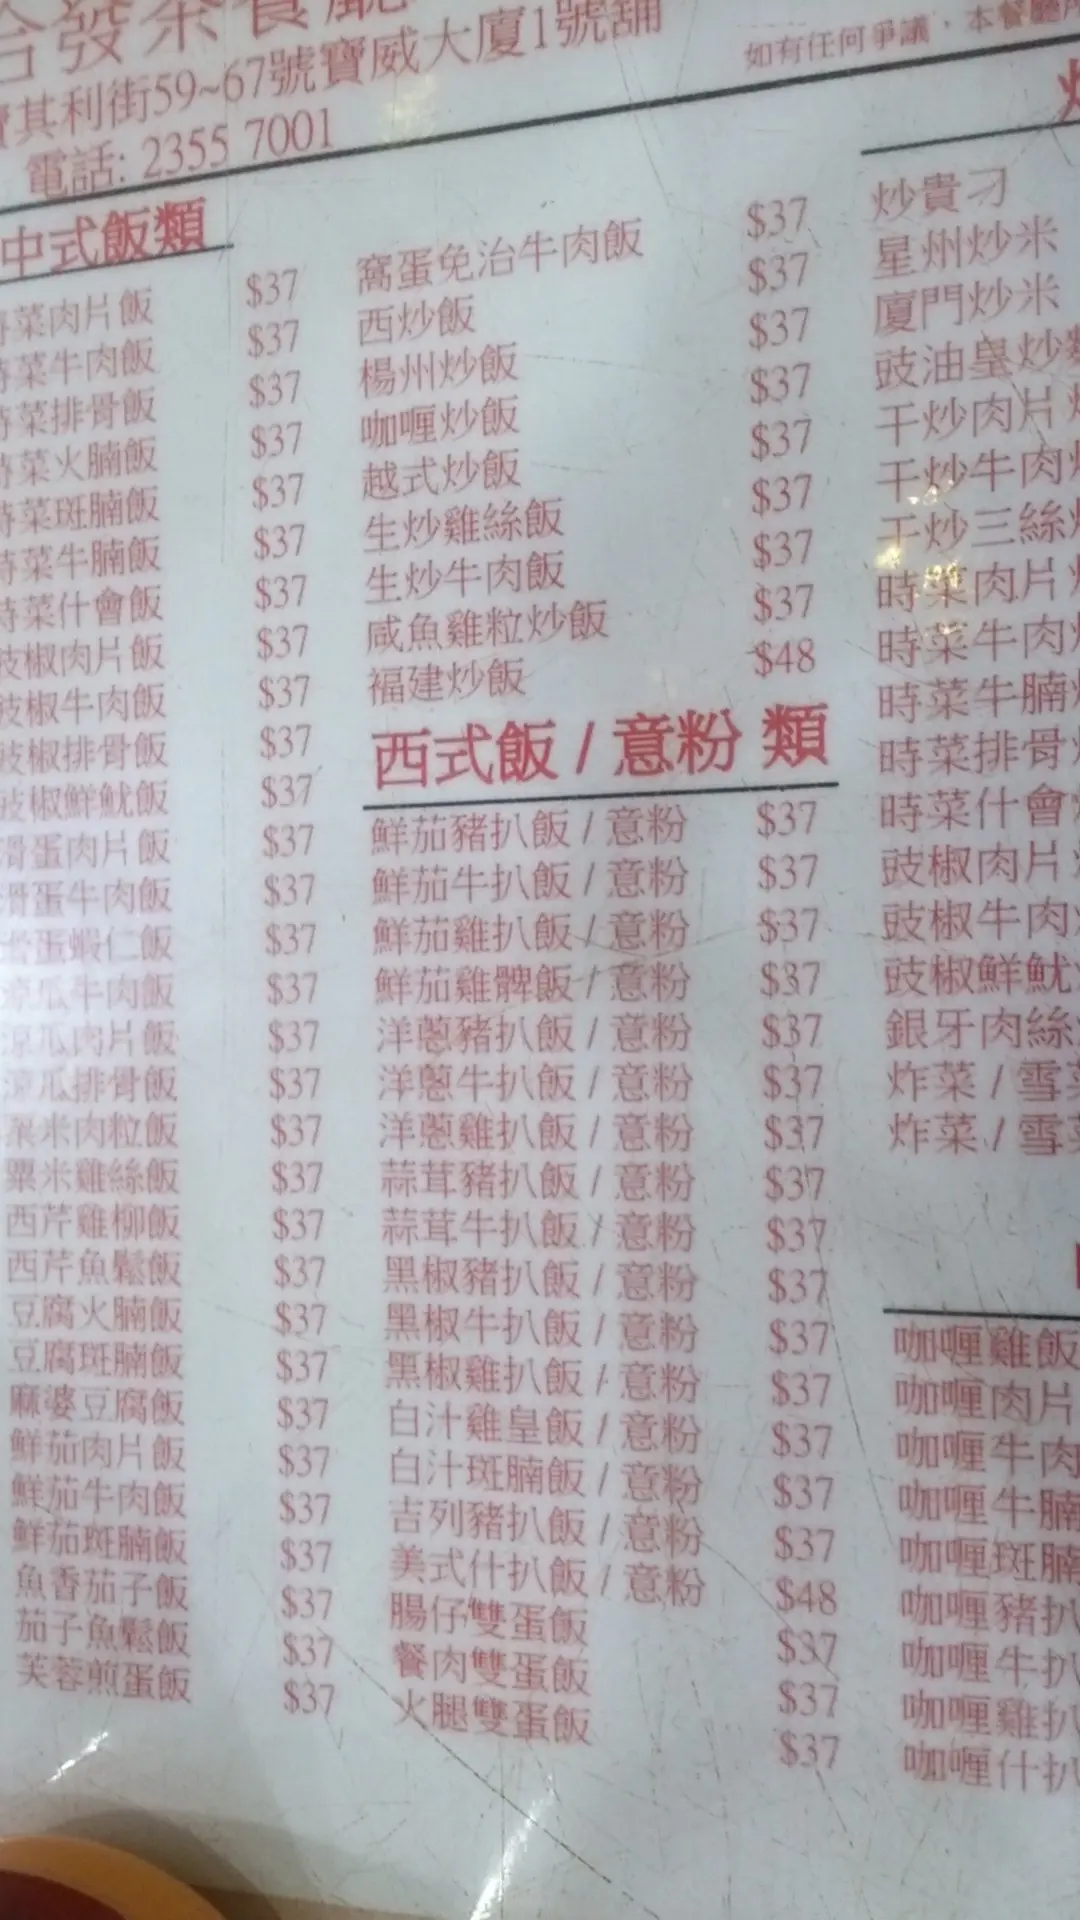 合發茶餐廳
寶其利街59~67號寶威大廈1號舖
電話: 2355 7001
如有任何爭議，本餐廳
中式飯類
時菜肉片飯 $37
時菜牛肉飯 $37
時菜排骨飯 $37
時菜火腩飯 $37
時菜斑腩飯 $37
時菜牛腩飯 $37
時菜什會飯 $37
豉椒肉片飯 $37
豉椒牛肉飯 $37
豉椒排骨飯 $37
豉椒鮮魷飯 $37
滑蛋肉片飯 $37
滑蛋牛肉飯 $37
滑蛋蝦仁飯 $37
涼瓜牛肉飯 $37
涼瓜肉片飯 $37
涼瓜排骨飯 $37
粟米肉粒飯 $37
粟米雞絲飯 $37
西芹雞柳飯 $37
西芹魚鬆飯 $37
豆腐火腩飯 $37
豆腐斑腩飯 $37
麻婆豆腐飯 $37
鮮茄肉片飯 $37
鮮茄牛肉飯 $37
鮮茄斑腩飯 $37
魚香茄子飯 $37
茄子魚鬆飯 $37
芙蓉煎蛋飯 $37
窩蛋免治牛肉飯 $37
西炒飯 $37
楊州炒飯 $37
咖喱炒飯 $37
越式炒飯 $37
生炒雞絲飯 $37
生炒牛肉飯 $37
咸魚雞粒炒飯 $37
福建炒飯 $48
西式飯 / 意粉 類
鮮茄豬扒飯 / 意粉 $37
鮮茄牛扒飯 / 意粉 $37
鮮茄雞扒飯 / 意粉 $37
鮮茄雞髀飯 / 意粉 $37
洋蔥豬扒飯 / 意粉 $37
洋蔥牛扒飯 / 意粉 $37
洋蔥雞扒飯 / 意粉 $37
蒜茸豬扒飯 / 意粉 $37
蒜茸牛扒飯 / 意粉 $37
黑椒豬扒飯 / 意粉 $37
黑椒牛扒飯 / 意粉 $37
黑椒雞扒飯 / 意粉 $37
白汁雞皇飯 / 意粉 $37
白汁斑腩飯 / 意粉 $37
吉列豬扒飯 / 意粉 $37
美式什扒飯 / 意粉 $48
腸仔雙蛋飯 $37
餐肉雙蛋飯 $37
火腿雙蛋飯 $37
炒貴刁
星州炒米
廈門炒米
豉油皇炒麵
干炒肉片
干炒牛肉
干炒三絲
時菜肉片
時菜牛肉
時菜牛腩
時菜排骨
時菜什會
豉椒肉片
豉椒牛肉
豉椒鮮魷
銀牙肉絲
炸菜 / 雪菜
炸菜 / 雪菜
咖喱雞飯
咖喱肉片
咖喱牛肉
咖喱牛腩
咖喱斑腩
咖喱豬扒
咖喱牛扒
咖喱雞扒
咖喱什扒